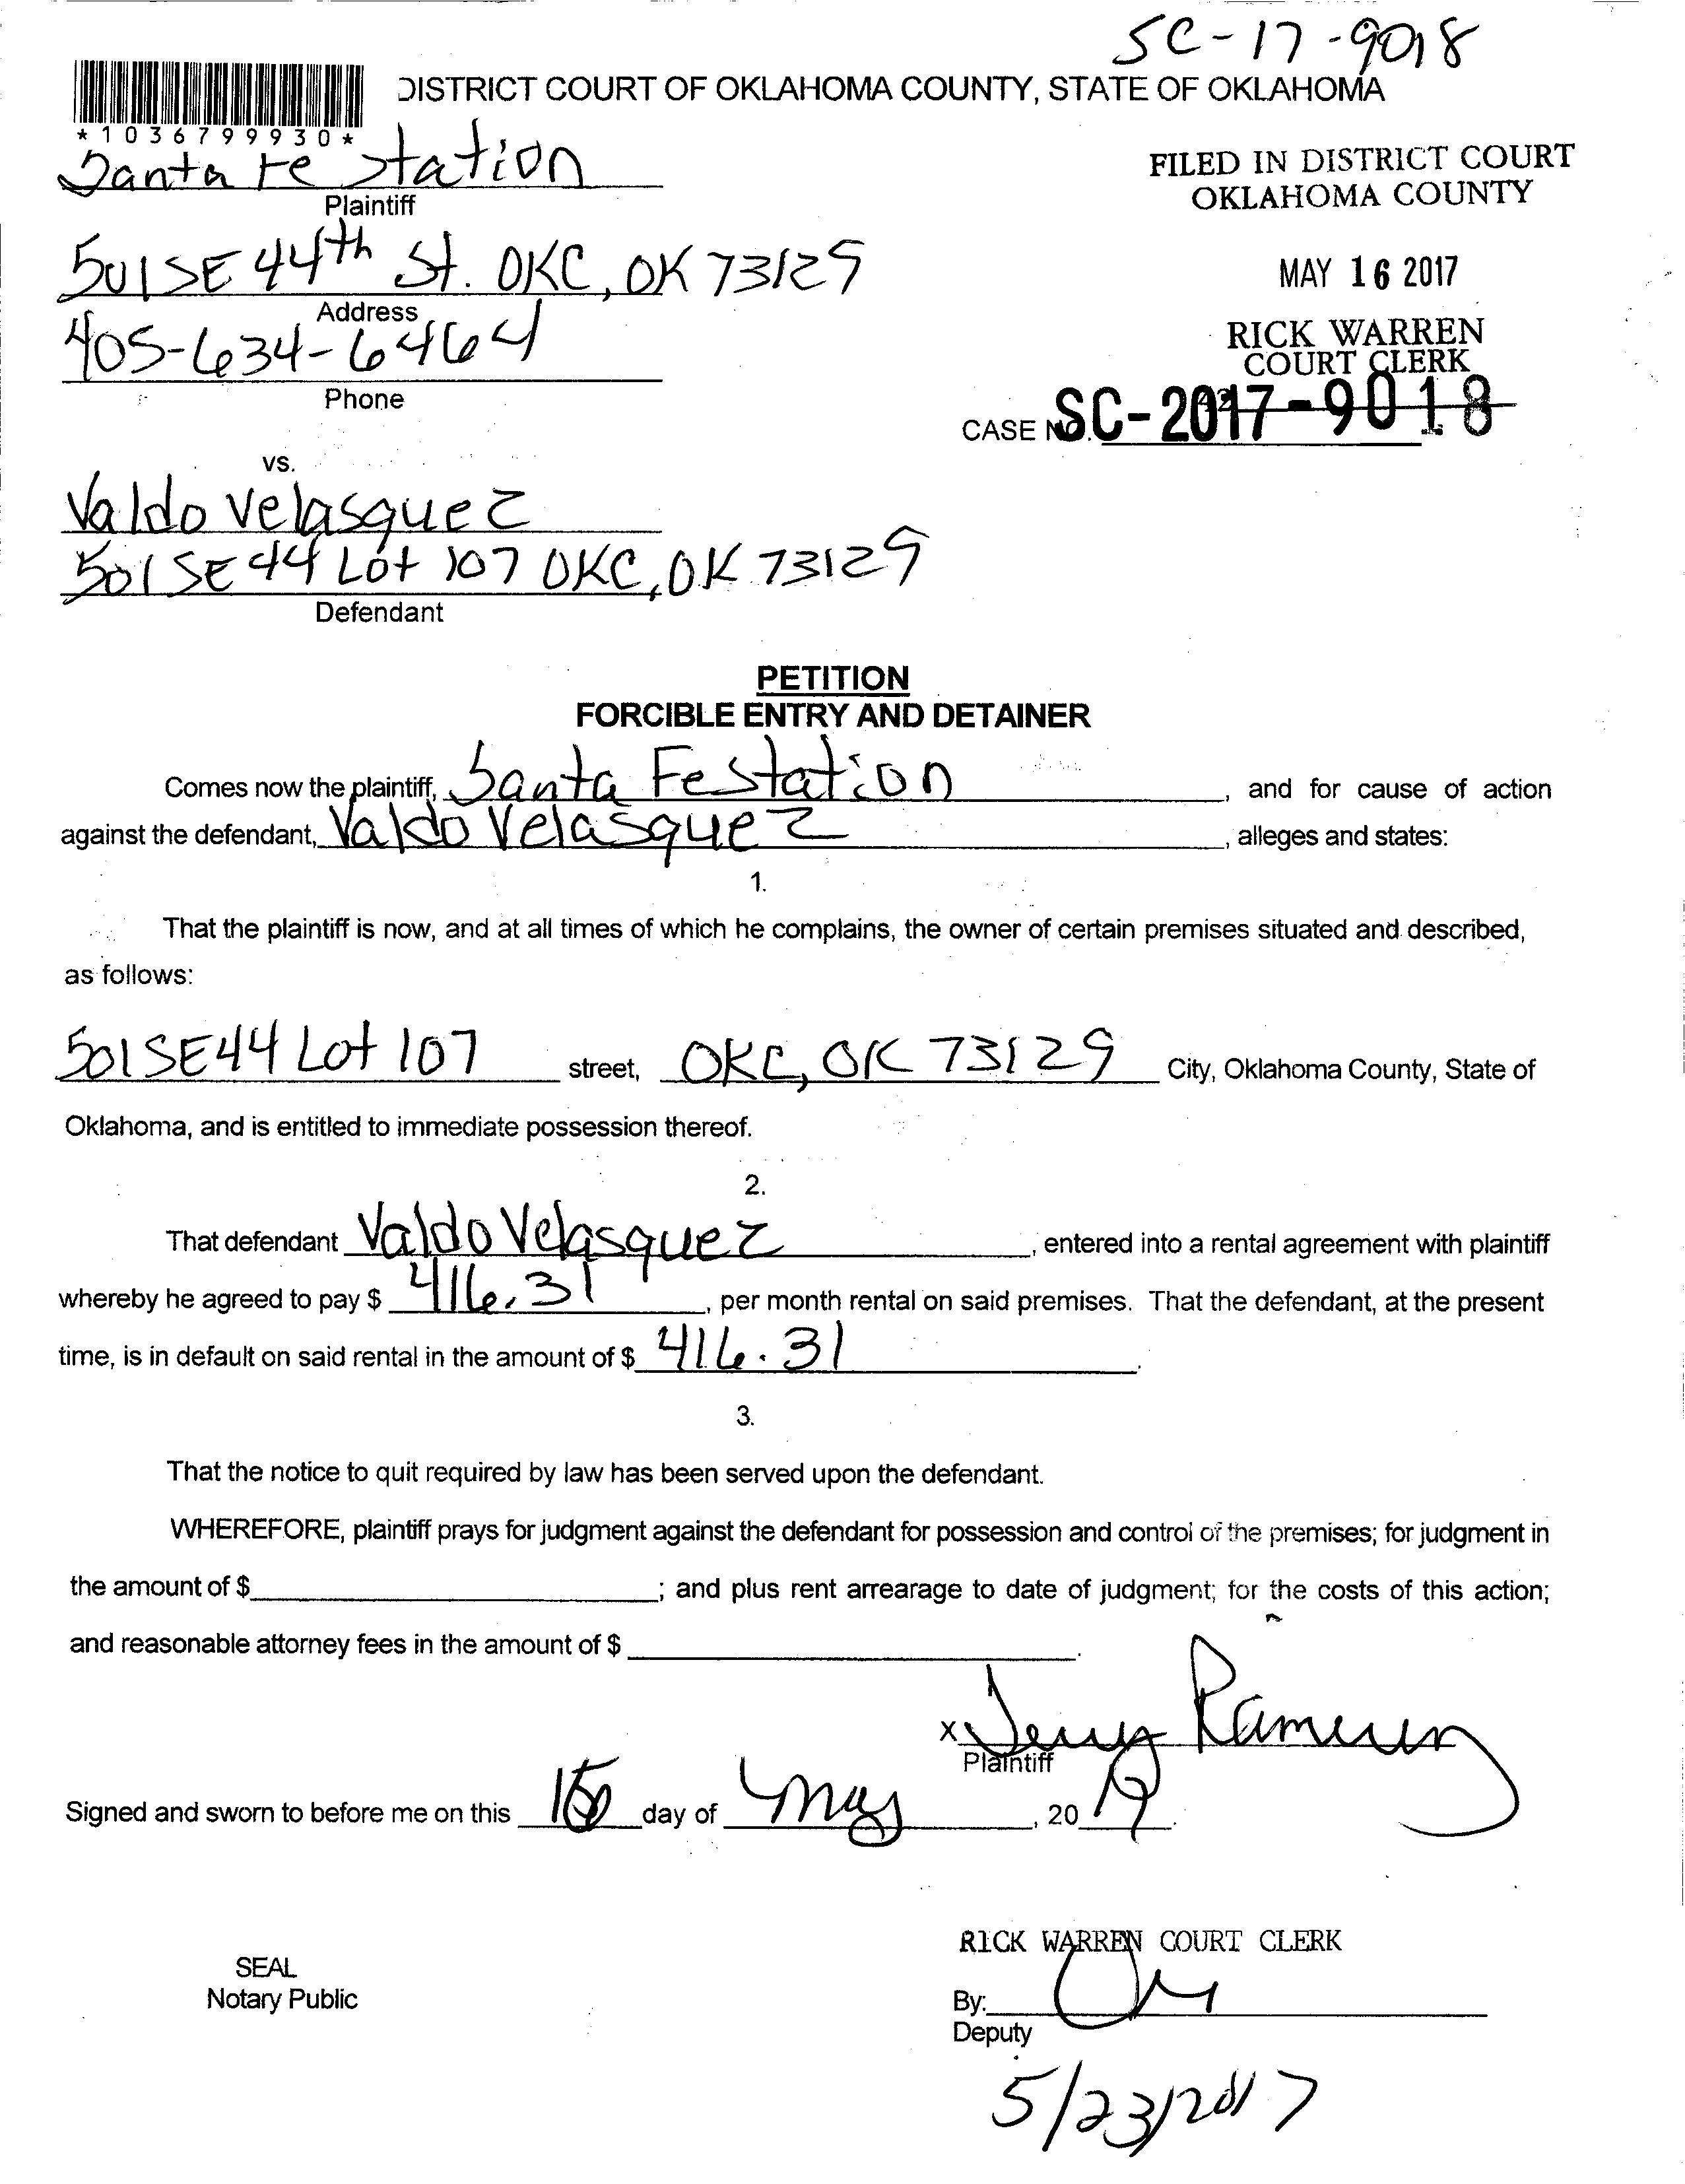 SC-17-9018
DISTRICT COURT OF OKLAHOMA COUNTY, STATE OF OKLAHOMA
*1036799930*
Santa Fe Station
Plaintiff
FILED IN DISTRICT COURT
OKLAHOMA COUNTY
501 SE 44th St. OKC, OK 73129
Address
MAY 16 2017
405-634-6464
Phone
RICK WARREN
COURT CLERK
CASE NO. SC-2017-9018
vs.
Valdo Velasquez
501 SE 44 Lot 107 OKC, OK 73129
Defendant
PETITION
FORCIBLE ENTRY AND DETAINER
Comes now the plaintiff, Santa Fe Station, and for cause of action
against the defendant, Valdo Velasquez, alleges and states:
1.
That the plaintiff is now, and at all times of which he complains, the owner of certain premises situated and described,
as follows:
501 SE 44 Lot 107 street, OKC, OK 73129 City, Oklahoma County, State of
Oklahoma, and is entitled to immediate possession thereof.
2.
That defendant Valdo Velasquez, entered into a rental agreement with plaintiff
whereby he agreed to pay $ 416.31, per month rental on said premises. That the defendant, at the present
time, is in default on said rental in the amount of $ 416.31.
3.
That the notice to quit required by law has been served upon the defendant.
WHEREFORE, plaintiff prays for judgment against the defendant for possession and control of the premises; for judgment in
the amount of $ ; and plus rent arrearage to date of judgment; for the costs of this action;
and reasonable attorney fees in the amount of $ .
X
Plaintiff
Signed and sworn to before me on this day of May, 2017.
RICK WARREN COURT CLERK
SEAL
Notary Public
By:
Deputy
5/23/2017